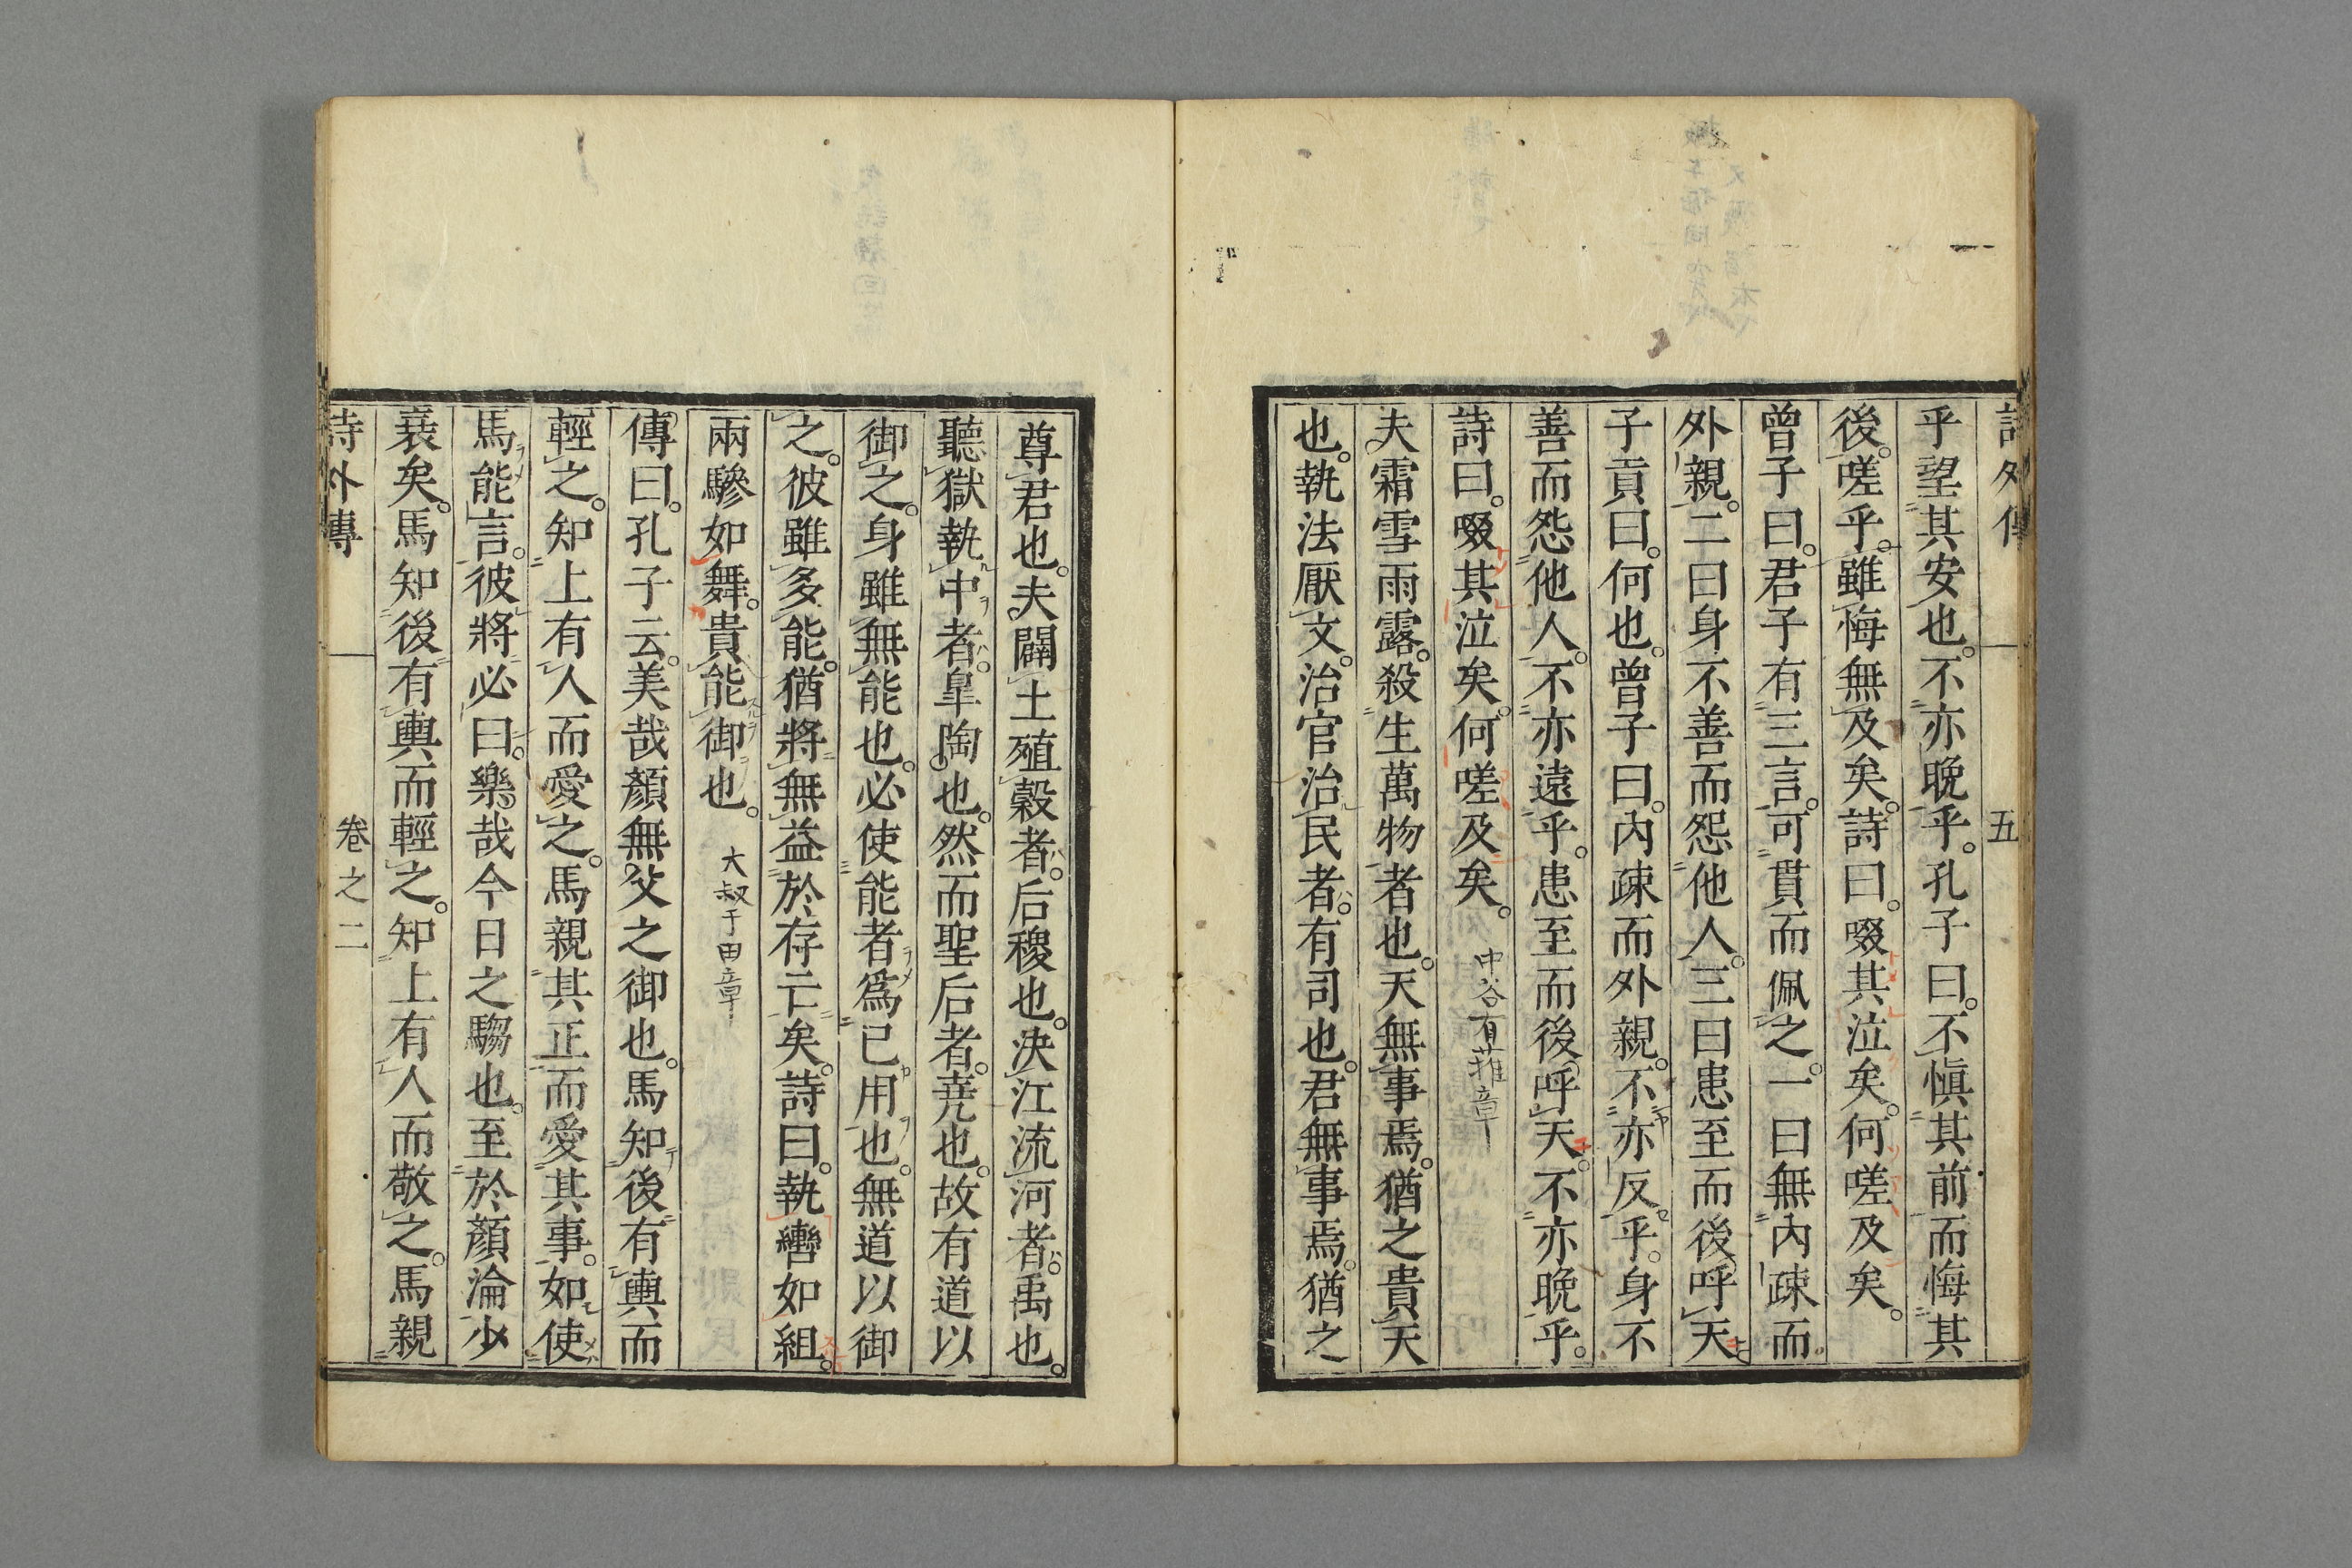 詩外傳 五
乎望其安也。不亦晚乎。孔子曰。不愼其前而悔其
後。嗟乎。雖悔無及矣。詩曰。啜其泣矣。何嗟及矣。
曾子曰。君子有三言。可貫而佩之。一曰無內疎而
外親。二曰身不善而怨他人。三曰患至而後呼天
子貢曰。何也。曾子曰。內疎而外親。不亦反乎。身不
善而怨他人。不亦遠乎。患至而後呼天。不亦晚乎。
詩曰。啜其泣矣。何嗟及矣。 中谷有蓷章
夫霜雪雨露。殺生萬物者也。天無事焉。猶之貴天
也。執法厭文。治官治民者。有司也。君無事焉。猶之
尊君也。夫闢土殖穀者。后稷也。決江流河者。禹也。
聽獄執中者。皐陶也。然而聖后者。堯也。故有道以
御之。身雖無能也。必使能者爲已用也。無道以御
之。彼雖多能。猶將無益於存亡矣。詩曰。執轡如組。
兩驂如舞。貴能御也。 大叔于田章
傳曰。孔子云。美哉顏無父之御也。馬知後有輿而
輕之。知上有人而愛之。馬親其正而愛其事。如使
馬能言。彼將必曰。樂哉今日之騶也。至於顏淪少
衰矣。馬知後有輿而輕之。知上有人而敬之。馬親
詩外傳 卷之二